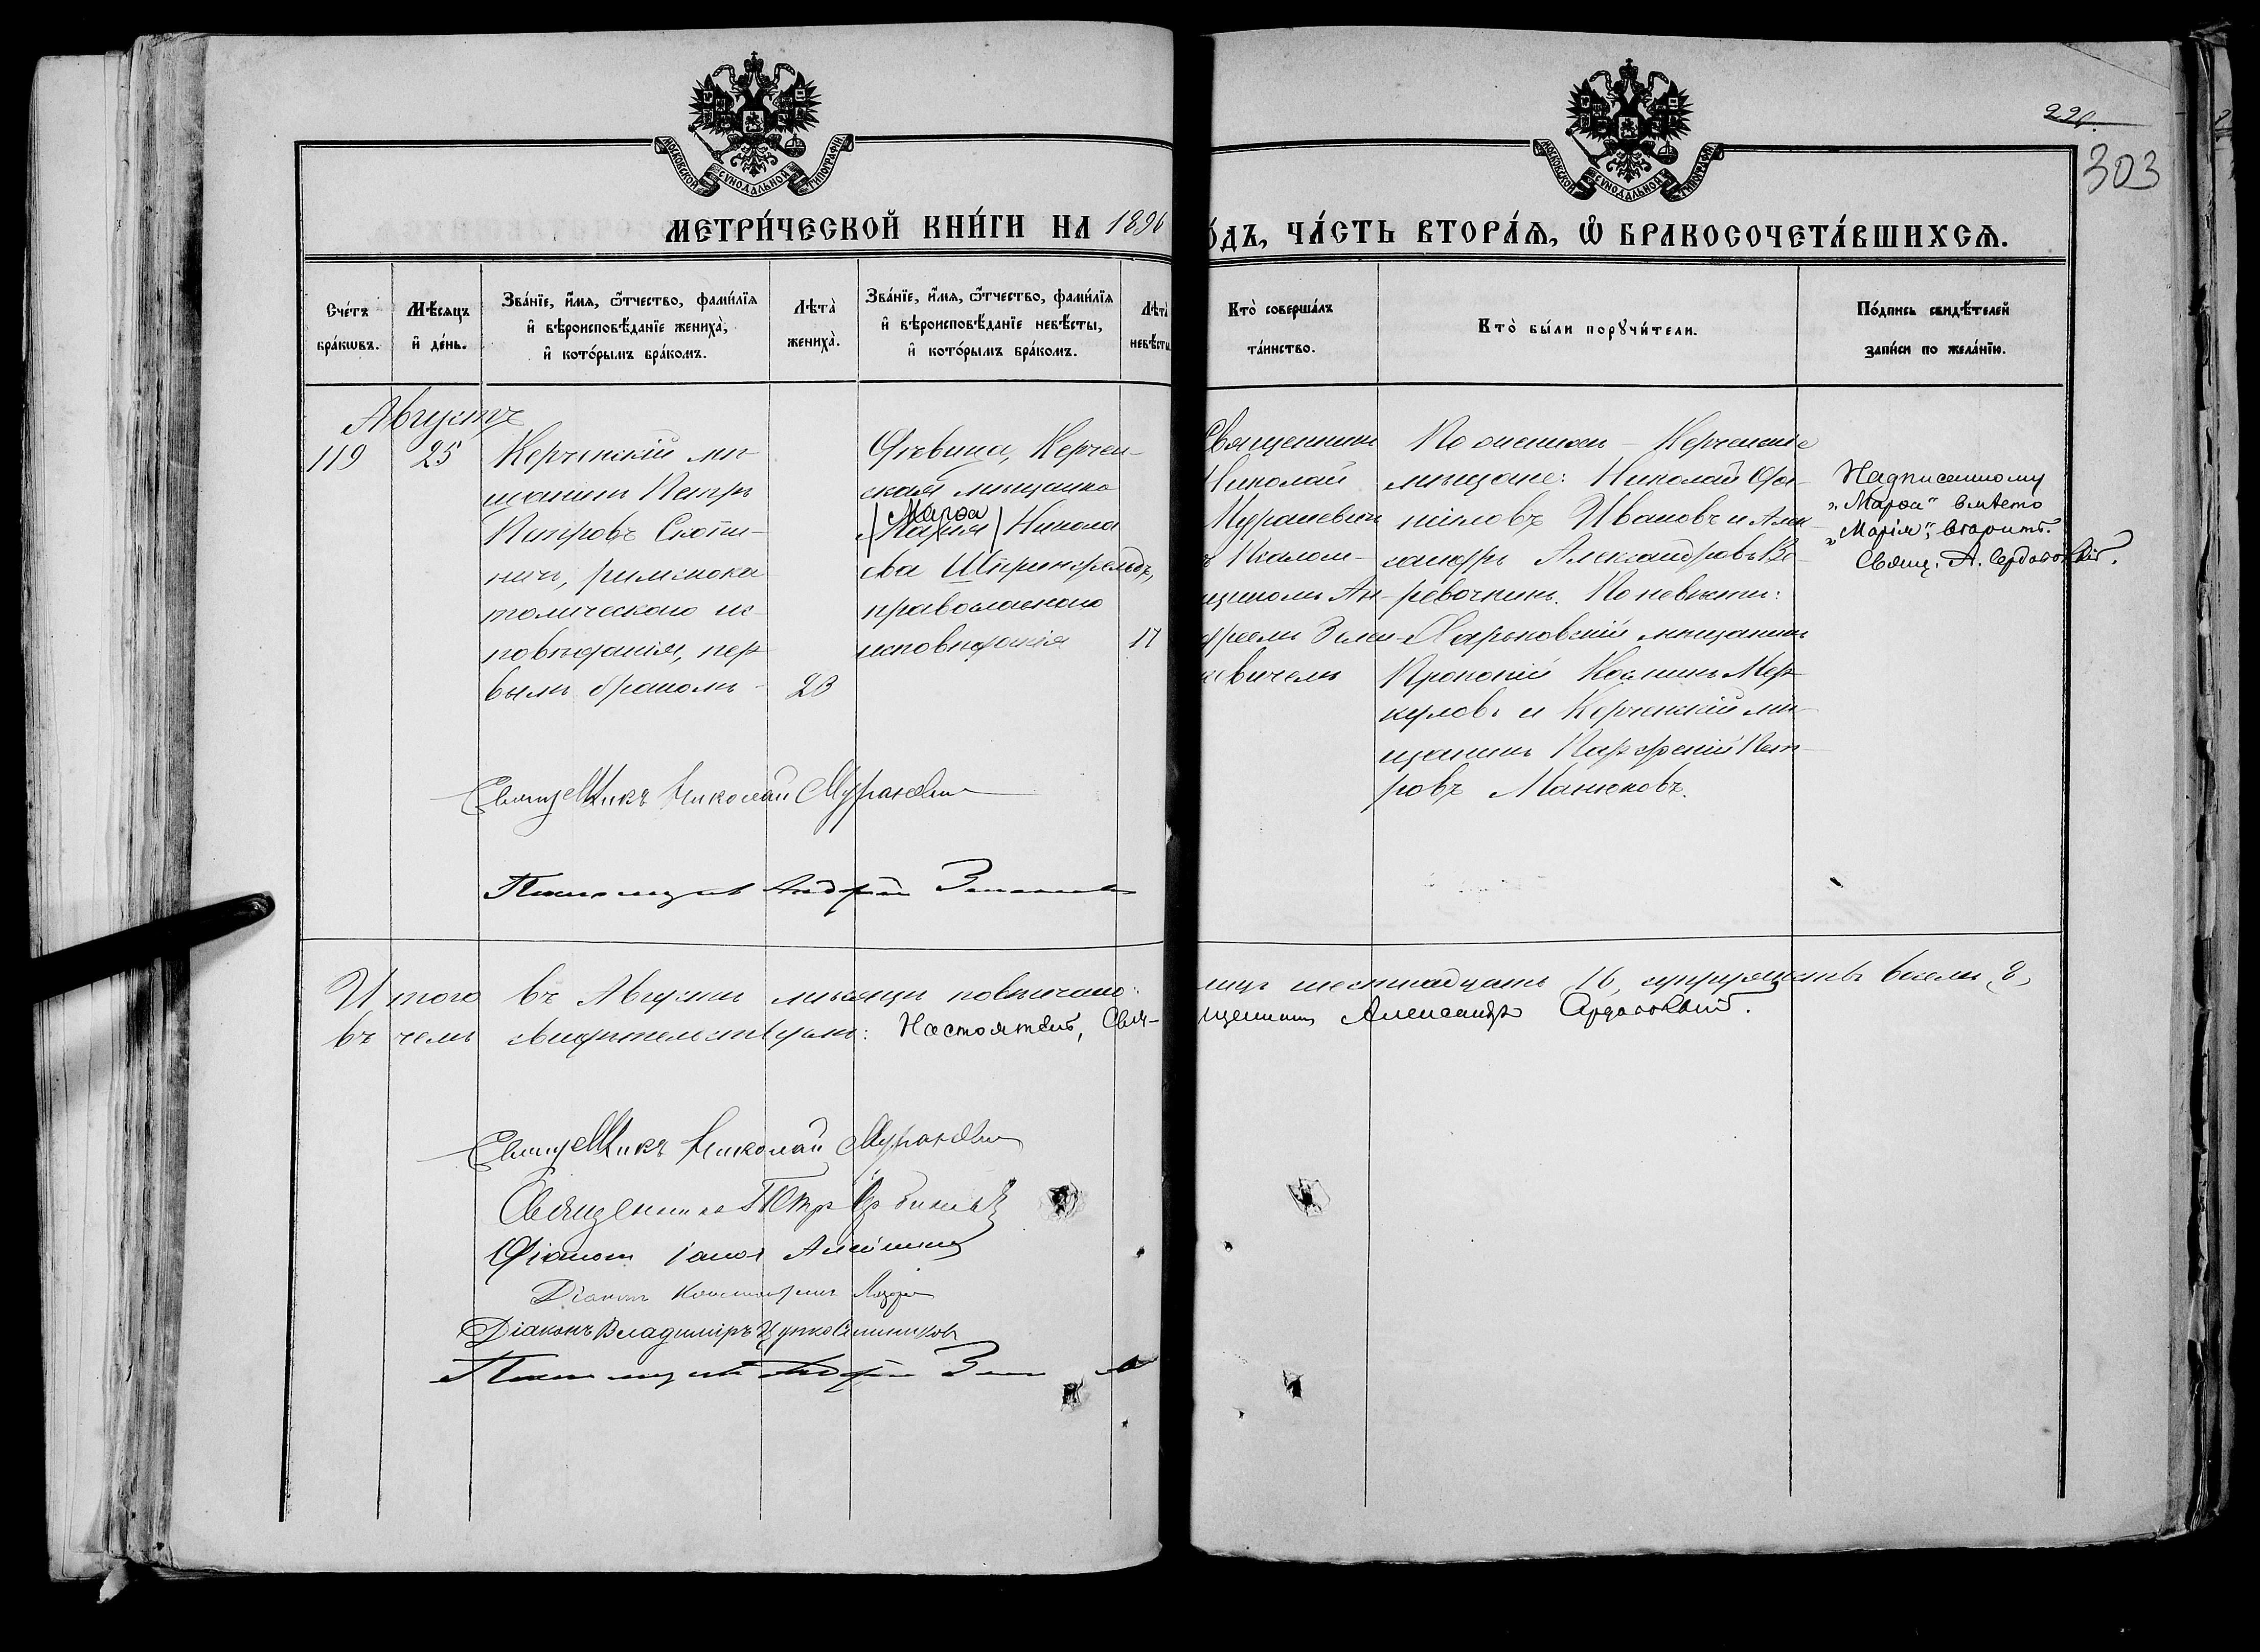 МОСКОВСКОЙ СѴНОДАЛЬНОЙ ТИПОГРАФІИ
МОСКОВСКОЙ СѴНОДАЛЬНОЙ ТИПОГРАФІИ
221.
303
МЕТРИ́ЧЕСКОЙ КНИ́ГИ НА 1896
О́ДЪ, ЧА́СТЬ ВТОРА́Ѧ, Ѡ҆ БРАКОСОЧЕТА́ВШИХСѦ.
Сче́тъ
бра́кѡвъ.
Мѣ́сѧцъ
и҆ де́нь.
Зва́нїе, и҆́мѧ, ѻ҆́тчество, фами́лїѧ
и҆ вѣроисповѣ́данїе жениха̀,
и҆ кото́рымъ бра́комъ.
Лѣта̀
жениха̀.
Зва́нїе, и҆́мѧ, ѻ҆́тчество, фами́лїѧ
и҆ вѣроисповѣ́данїе невѣ́сты,
и҆ кото́рымъ бра́комъ.
Лѣта̀
невѣ́сты
Кто̀ соверша́лъ
та́инство.
Кто̀ бы́ли порꙋчи́тели.
По́дпись свидѣ́телей
за́писи по жела́нїю.
Августъ
119
25
Керченскій мѣ-
щанинъ Петръ
Петровъ
римскока-
толическаго ис-
повѣданія, пер-
вымъ бракомъ
23
Дѣвица, Керчен-
ская мѣщанка
Марѳа
/Марія/ Никола-
ева Ширинфельдъ,
православнаго
исповѣданія
17
Священникъ
Николай
Мураневич
ъ Псалом-
щикомъ Ан-
дреемъ
евичемъ
По женихѣ - Керченскіе
мѣщане: Николай
Ивановъ и Алек-
сандръ Александровъ Ве-
ревочкинъ. По невѣстѣ:
Харьковскій мѣщанинъ
Прокопій Косминъ Мер-
куловъ и Керченскій мѣ-
щанинъ Парфеній Пет-
ровъ Манюковъ.
Надписанному
„Марѳа“ вмѣсто
„Марія“, вѣрить.
Свящ. А. Сердобольскій.
Священникъ Николай Мураневич
Псаломщикъ Андрей
Итого въ Августѣ мѣсяцѣ повѣнчано:
лицъ шестнадцать 16, супружествъ восемь 8,
въ чемъ свидѣтельствуемъ: Настоятель, Свя-
щенникъ Александръ Сердобольскій.
Священникъ Николай Мураневич
Священникъ Петръ
Діаконъ
Діаконъ
Діаконъ Владиміръ
Псаломщикъ Андрей